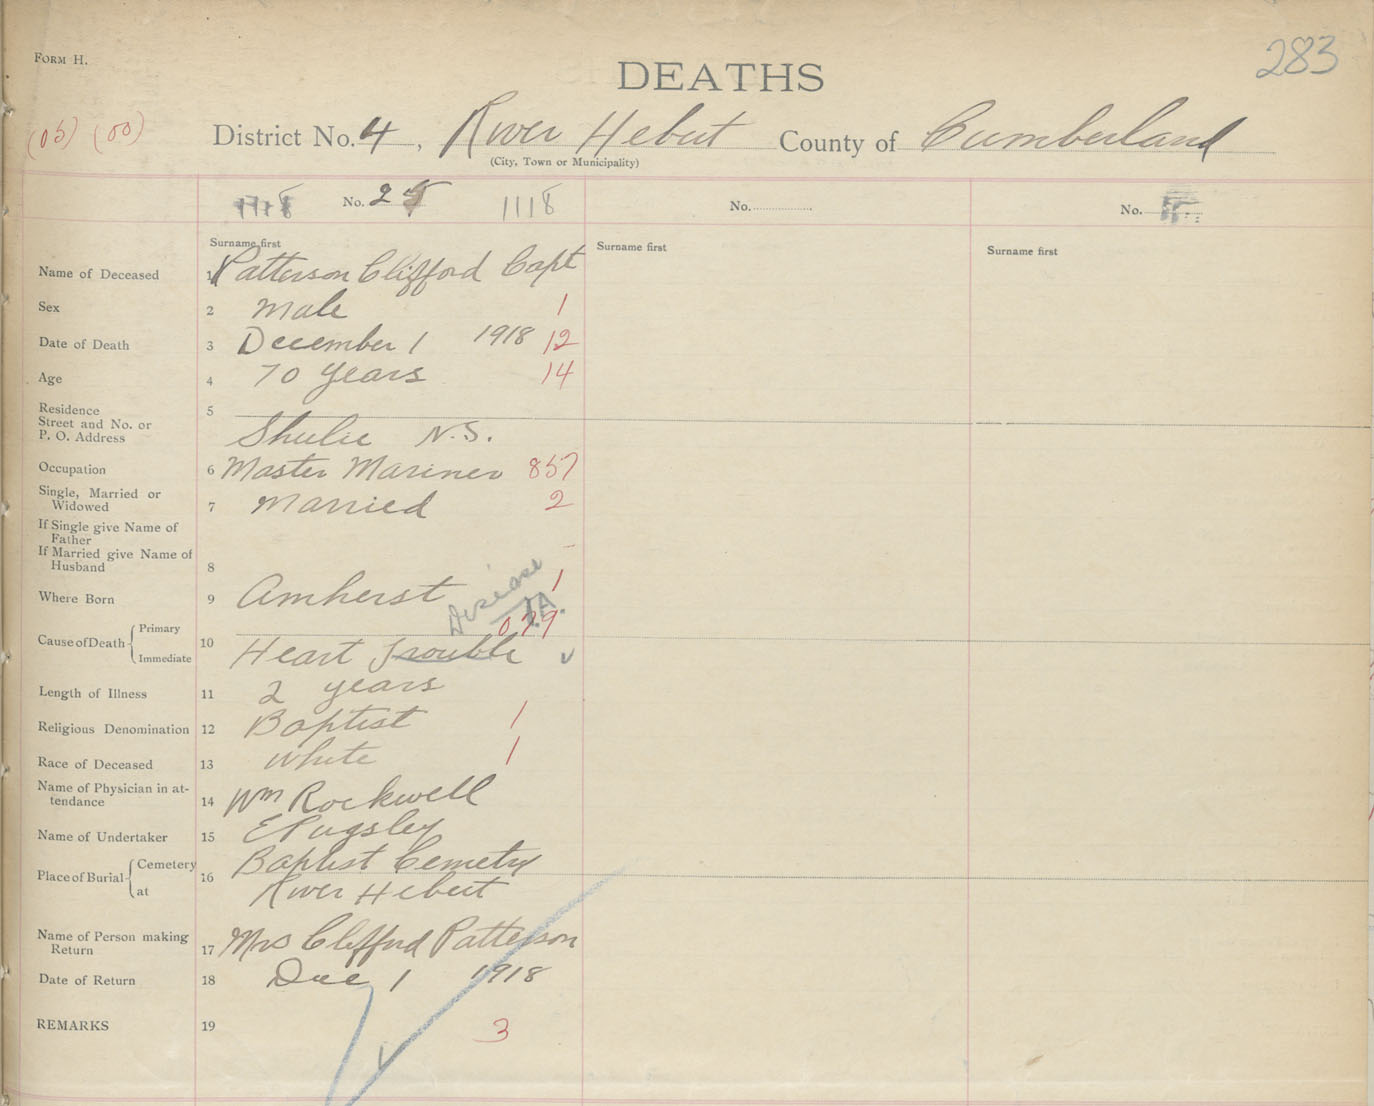 FORM H.
283
DEATHS
(05) (00)
District No. 4, River Hebert County of Cumberland
(City, Town or Municipality)
1118 No. 25 1118 No. No.
Surname first Surname first Surname first
Name of Deceased 1 Patterson Clifford Capt
Sex 2 Male 1
Date of Death 3 December 1 1918 12
Age 4 70 years 14
Residence 5
Street and No. or
P. O. Address Shulie N.S.
Occupation 6 Master Mariner 857
Single, Married or
Widowed 7 Married 2
If Single give Name of
Father
If Married give Name of
Husband 8
Where Born 9 Amherst 1
Disease
079
Cause of Death Primary 10
Immediate Heart Trouble
Length of Illness 11 2 years
Religious Denomination 12 Baptist 1
Race of Deceased 13 White 1
Name of Physician in at-
tendance 14 Wm Rockwell
Name of Undertaker 15 E Pugsley
Place of Burial Cemetery 16 Baptist Cemetry
at River Hebert
Name of Person making
Return 17 Mrs Clifford Patterson
Date of Return 18 Dec 1 1918
REMARKS 19 3